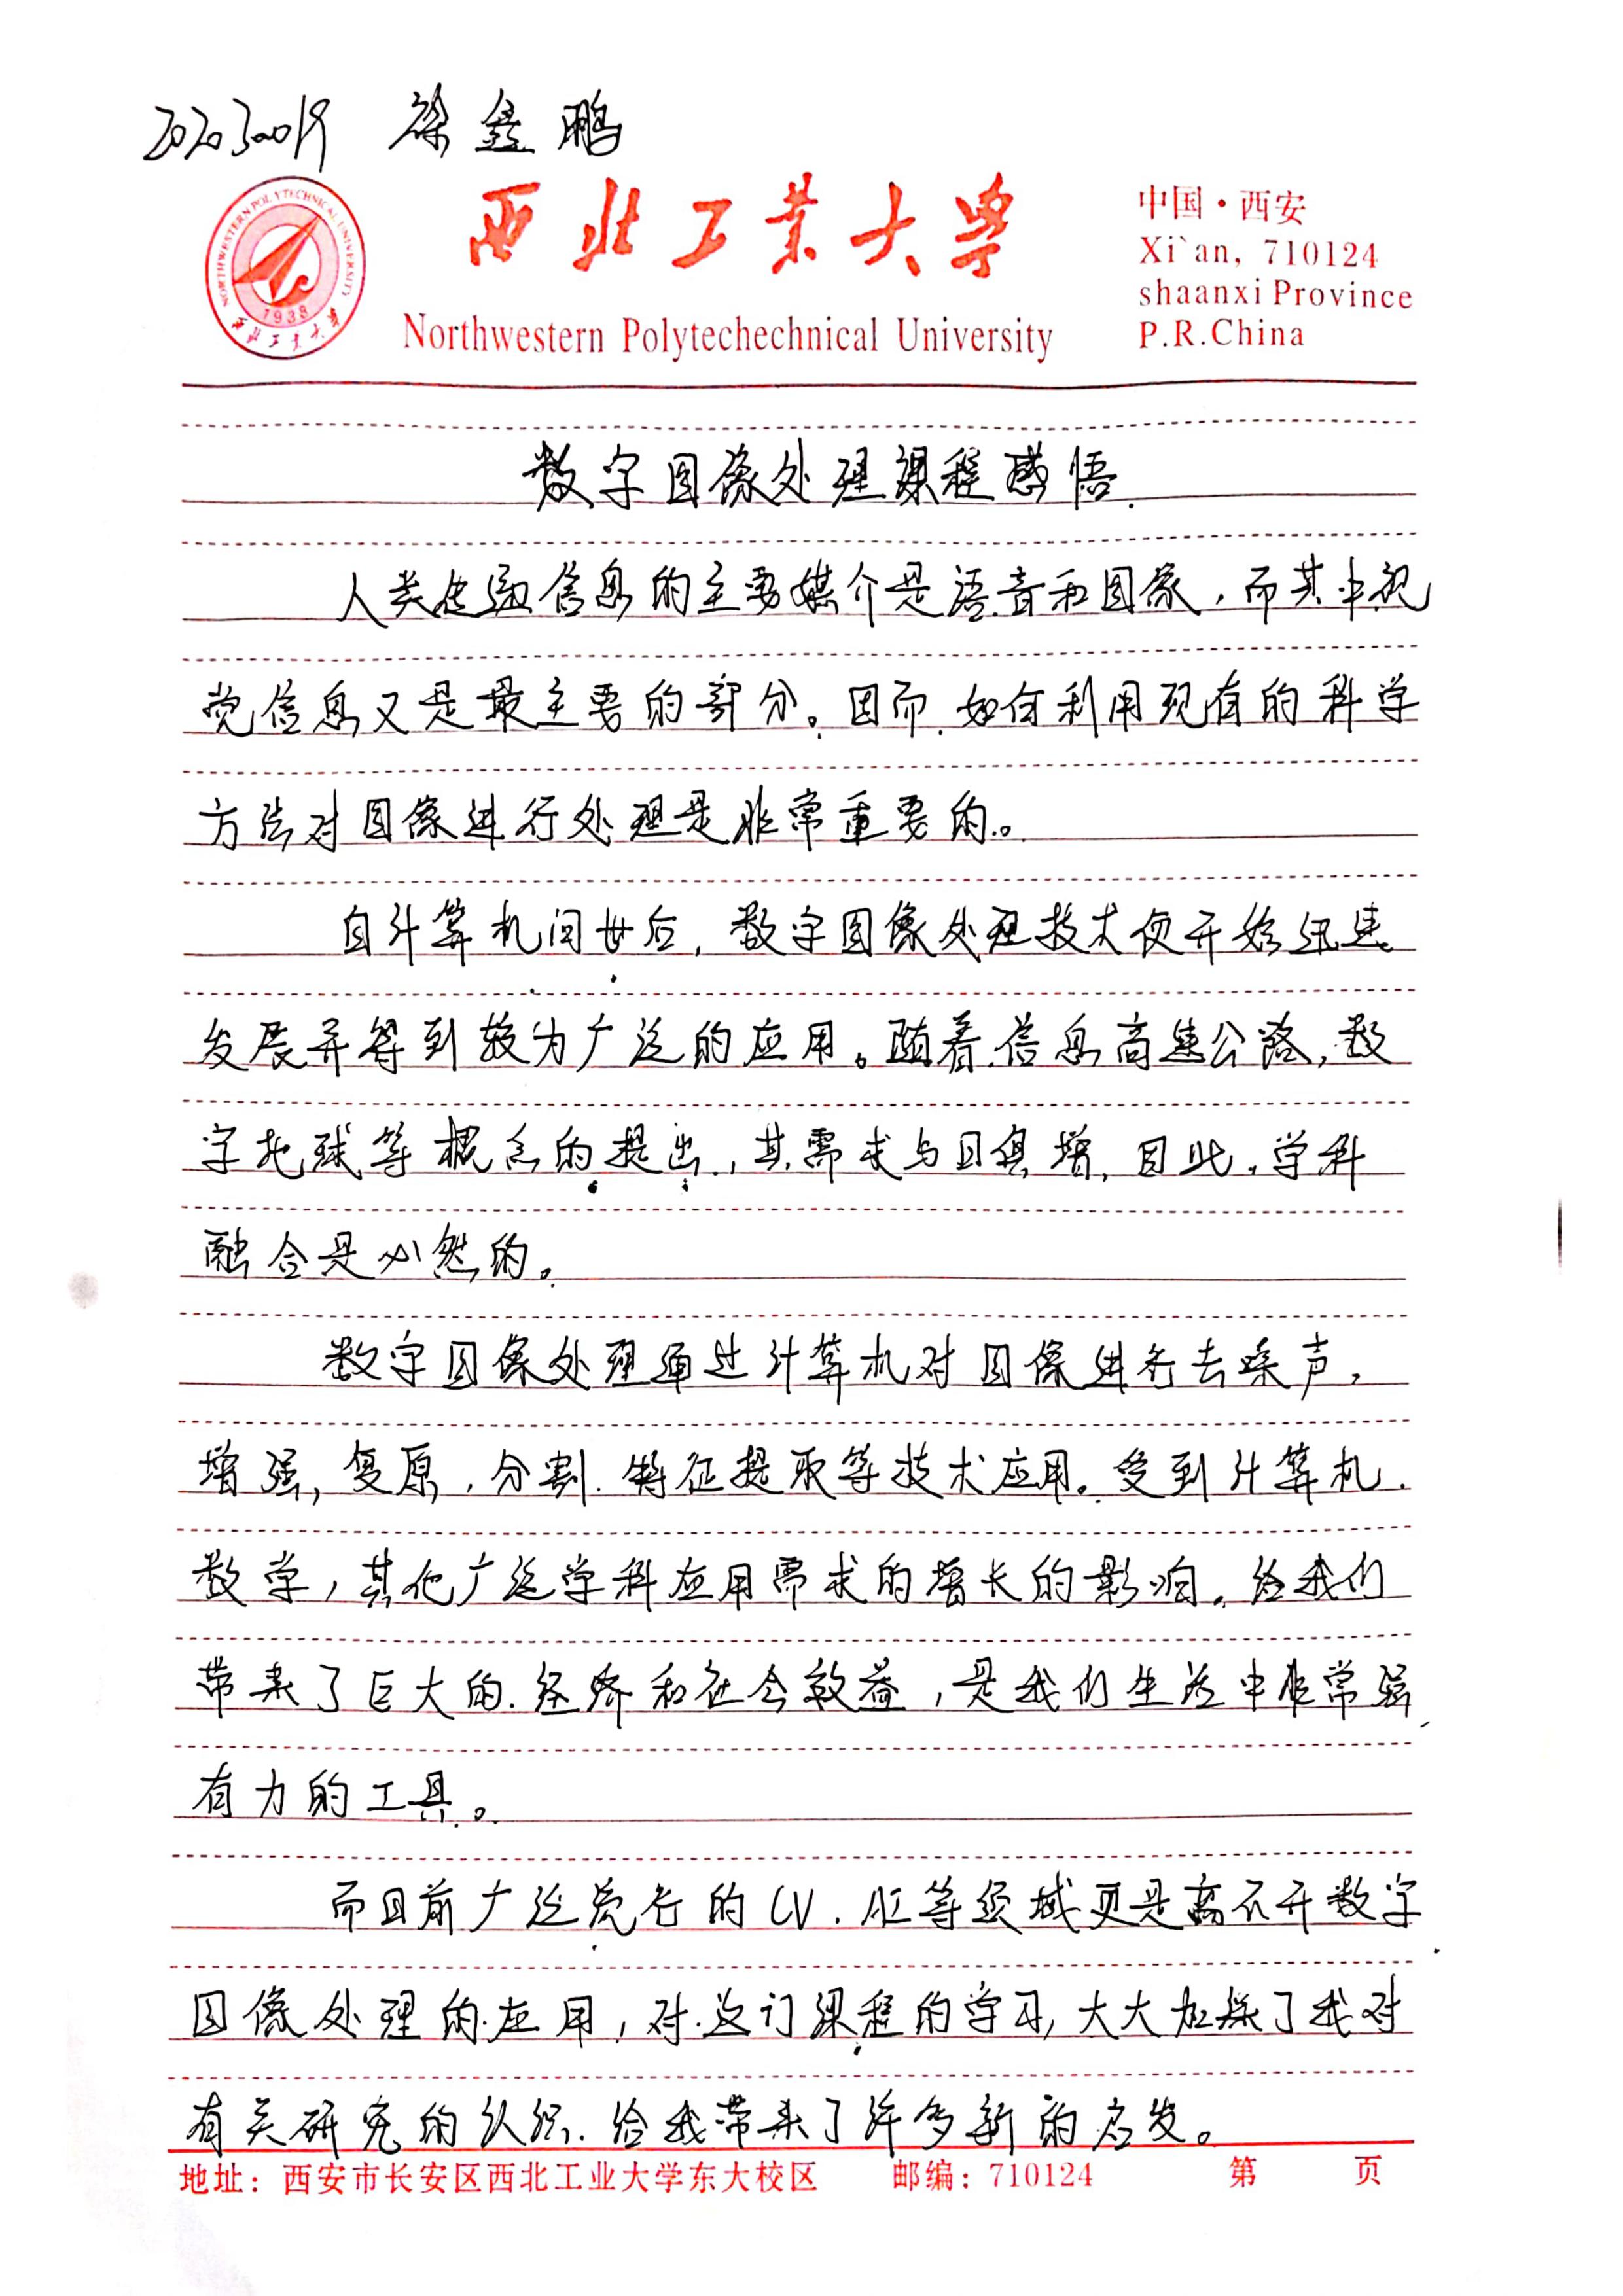 2020300019 徐鑫鹏
西北工业大学
Northwestern Polytechechnical University
中国·西安
Xi`an, 710124
shaanxi Province
P.R.China
NORTHWESTERN POLYTECHNICAL UNIVERSITY
1938
西北工业大学
数字图像处理课程感悟
人类传递信息的主要媒介是语音和图像,而其中视
觉信息又是最主要的部分。因而,如何利用现有的科学
方法对图像进行处理是非常重要的。
自计算机问世后,数字图像处理技术便开始迅速
发展并得到较为广泛的应用。随着信息高速公路,数
字地球等概念的提出,其需求与日俱增,因此,学科
融合是必然的。
数字图像处理通过计算机对图像进行去噪声,
增强,复原,分割,特征提取等技术应用。受到计算机,
数学,其他广泛学科应用需求的增长的影响,给我们
带来了巨大的经济和社会效益,是我们生活中非常强
有力的工具。
而目前广泛流行的CV,AI等领域更是离不开数字
图像处理的应用,对这门课程的学习,大大加深了我对
有关研究的认识,给我带来了许多新的启发。
地址:西安市长安区西北工业大学东大校区 邮编:710124 第 页